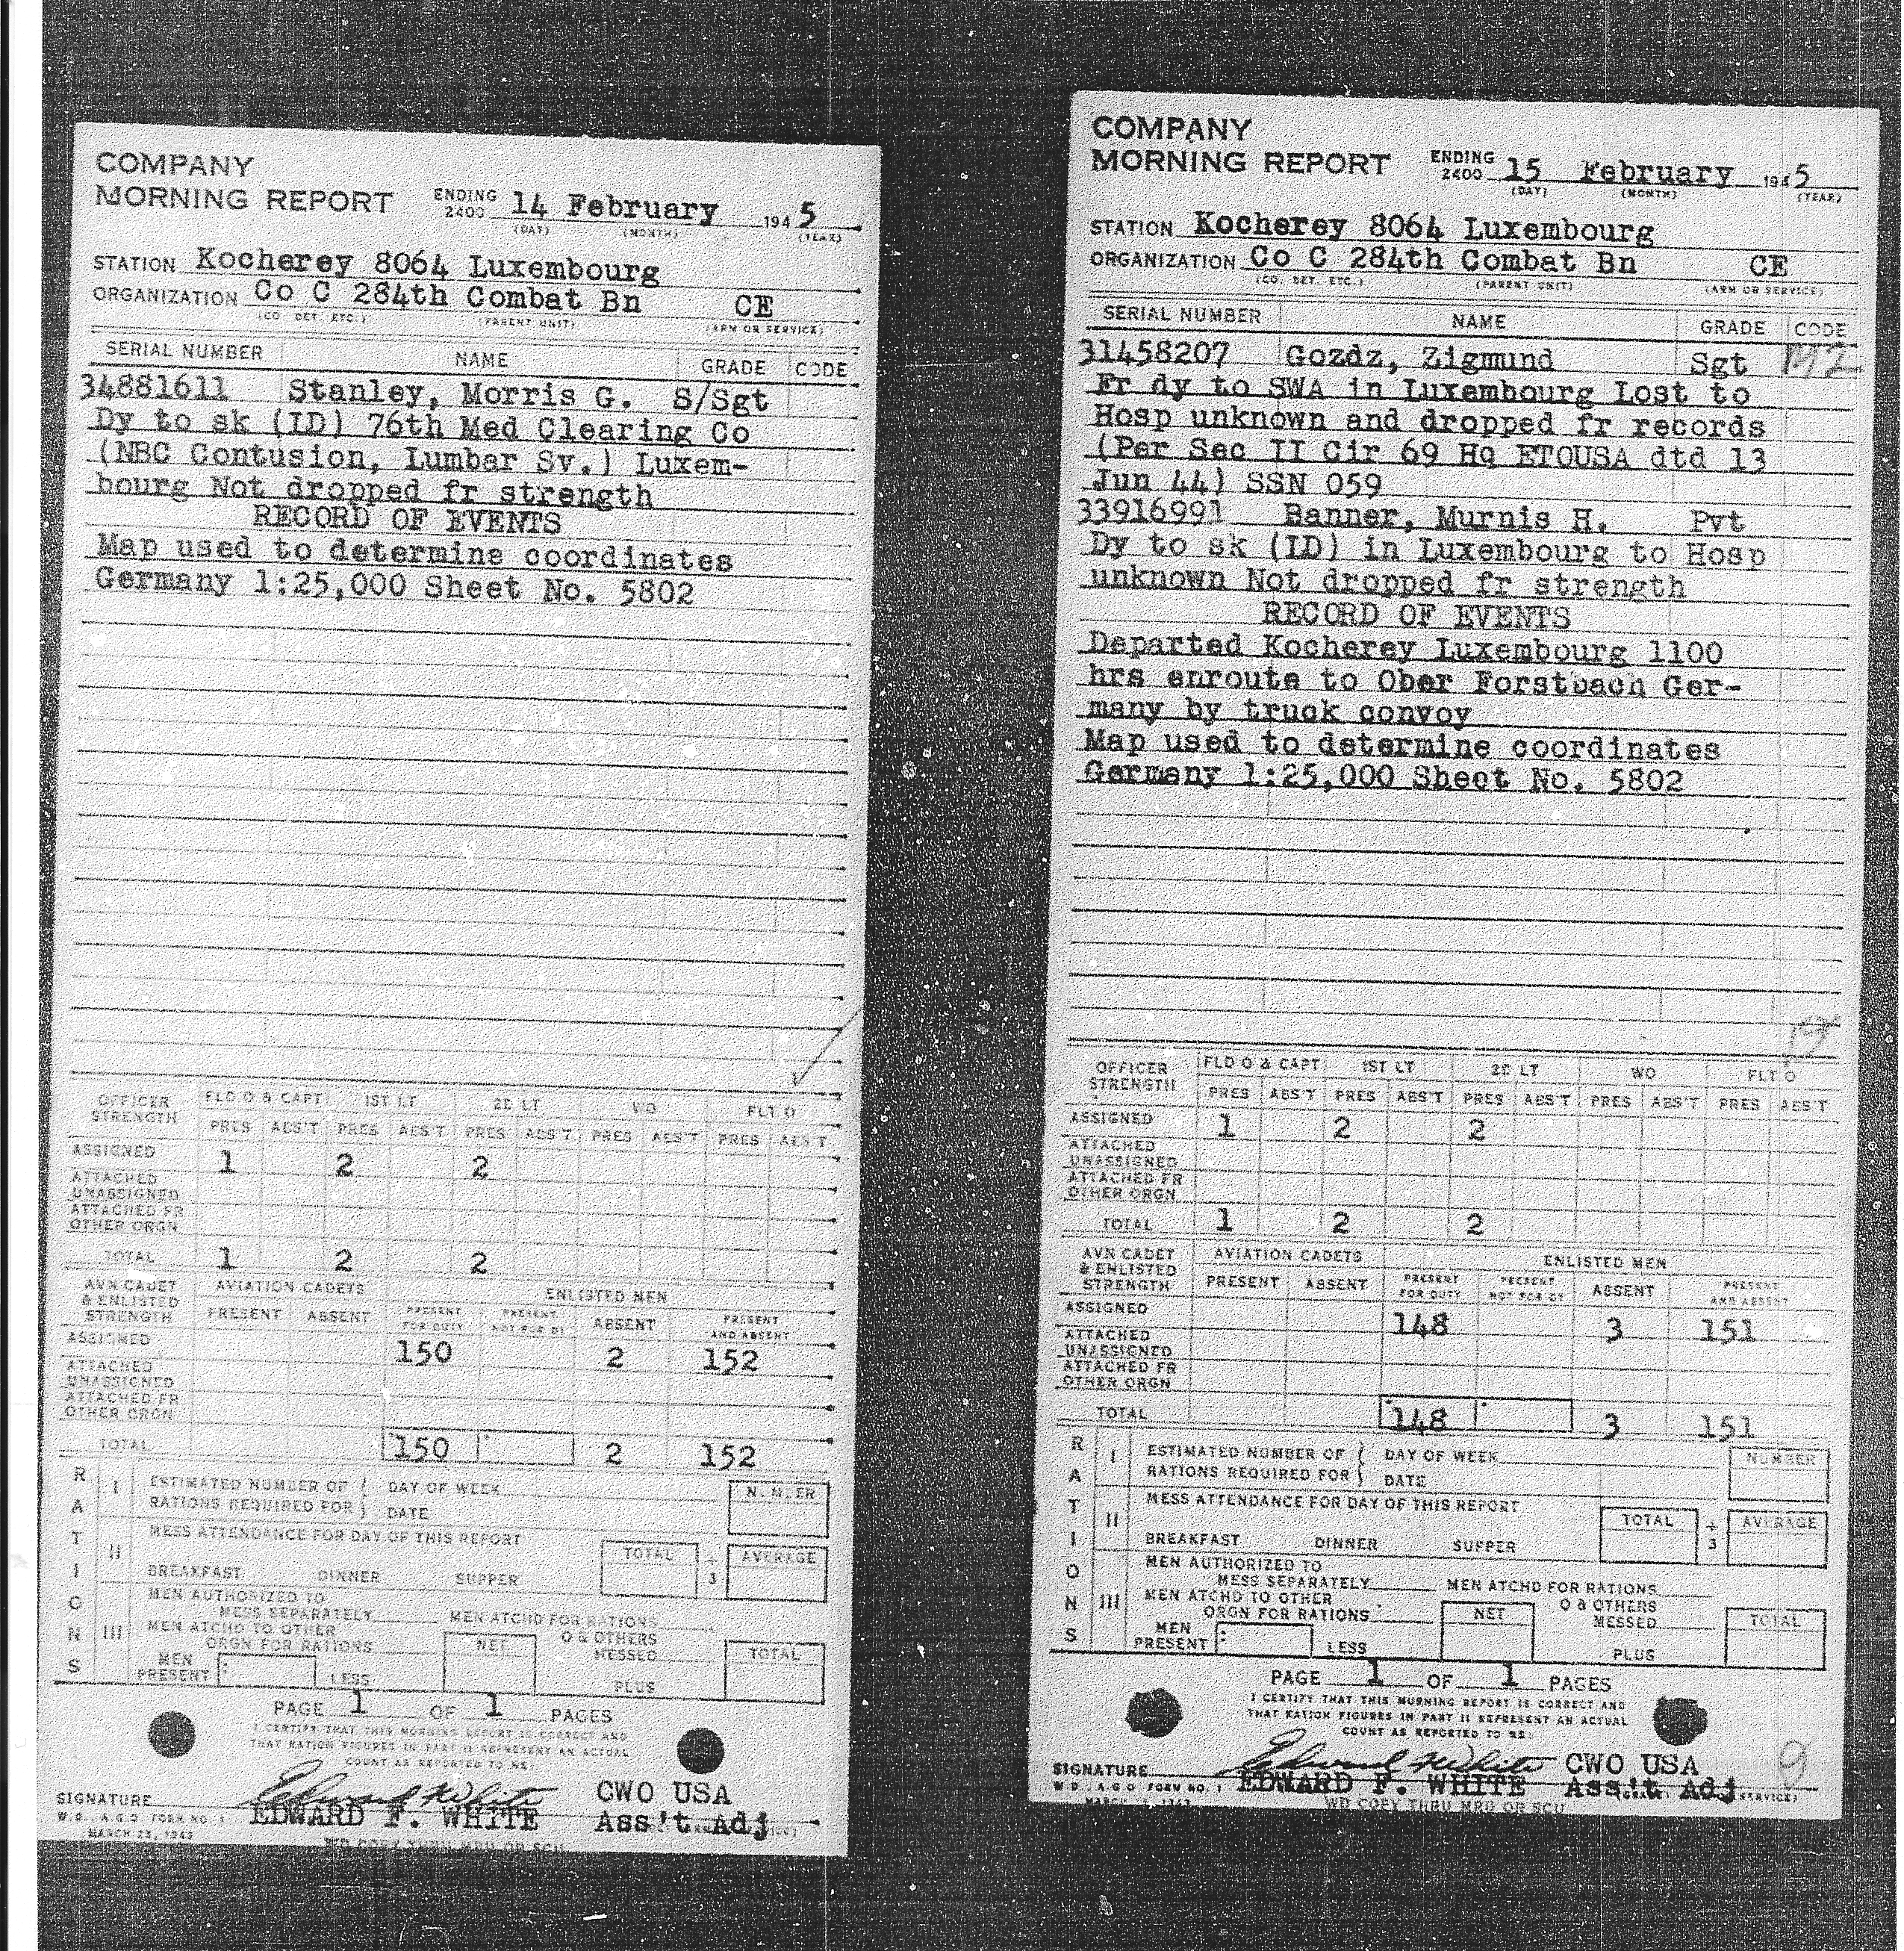 COMPANY
MORNING REPORT ENDING 2400 14 February 1945
(DAY) (MONTH) (YEAR)
STATION Kocherey 8064 Luxembourg
ORGANIZATION Co C 284th Combat Bn CE
(CO. DET. ETC.) (PARENT UNIT) (ARM OR SERVICE)
SERIAL NUMBER NAME GRADE CODE
34881611 Stanley, Morris G. S/Sgt
Dy to sk (LD) 76th Med Clearing Co
(NBC Contusion, Lumbar Sv.) Luxem-
bourg Not dropped fr strength
RECORD OF EVENTS
Map used to determine coordinates
Germany 1:25,000 Sheet No. 5802
OFFICER STRENGTH FLD O & CAPT 1ST LT 2D LT WO FLT O
PRES ABS'T PRES ABS'T PRES ABS'T PRES ABS'T PRES ABS'T
ASSIGNED 1 2 2
ATTACHED
UNASSIGNED
ATTACHED FR
OTHER ORGN
TOTAL 1 2 2
AVN CADET & ENLISTED STRENGTH AVIATION CADETS ENLISTED MEN
PRESENT ABSENT PRESENT FOR DUTY PRESENT NOT FOR DY ABSENT PRESENT AND ABSENT
ASSIGNED 150 2 152
ATTACHED
UNASSIGNED
ATTACHED FR
OTHER ORGN
TOTAL 150 2 152
RATIONS
I ESTIMATED NUMBER OF DAY OF WEEK NUMBER
RATIONS REQUIRED FOR DATE
II MESS ATTENDANCE FOR DAY OF THIS REPORT
TOTAL ÷ 3 AVERAGE
BREAKFAST DINNER SUPPER
MEN AUTHORIZED TO
MESS SEPARATELY MEN ATCHD FOR RATIONS
III MEN ATCHD TO OTHER
ORGN FOR RATIONS NET O & OTHERS MESSED TOTAL
MEN PRESENT LESS PLUS
PAGE 1 OF 1 PAGES
I CERTIFY THAT THIS MORNING REPORT IS CORRECT AND
THAT RATION FIGURES IN PART II REPRESENT AN ACTUAL
COUNT AS REPORTED TO ME.
Edward F White CWO USA
SIGNATURE EDWARD F. WHITE Ass't Adj
W.D., A.G.O. FORM NO. 1
MARCH 23, 1943
WD COPY THRU MRU OR SCU
COMPANY
MORNING REPORT ENDING 2400 15 February 1945
(DAY) (MONTH) (YEAR)
STATION Kocherey 8064 Luxembourg
ORGANIZATION Co C 284th Combat Bn CE
(CO. DET. ETC.) (PARENT UNIT) (ARM OR SERVICE)
SERIAL NUMBER NAME GRADE CODE
31458207 Gozdz, Zigmund Sgt
Fr dy to SWA in Luxembourg Lost to
Hosp unknown and dropped fr records
(Per Sec II Cir 69 Hq ETOUSA dtd 13
Jun 44) SSN 059
33916991 Banner, Murnis H. Pvt
Dy to sk (LD) in Luxembourg to Hosp
unknown Not dropped fr strength
RECORD OF EVENTS
Departed Kocherey Luxembourg 1100
hrs enroute to Ober Forstbach Ger-
many by truck convoy
Map used to determine coordinates
Germany 1:25,000 Sheet No. 5802
OFFICER STRENGTH FLD O & CAPT 1ST LT 2D LT WO FLT O
PRES ABS'T PRES ABS'T PRES ABS'T PRES ABS'T PRES ABS'T
ASSIGNED 1 2 2
ATTACHED
UNASSIGNED
ATTACHED FR
OTHER ORGN
TOTAL 1 2 2
AVN CADET & ENLISTED STRENGTH AVIATION CADETS ENLISTED MEN
PRESENT ABSENT PRESENT FOR DUTY PRESENT NOT FOR DY ABSENT PRESENT AND ABSENT
ASSIGNED 148 3 151
ATTACHED
UNASSIGNED
ATTACHED FR
OTHER ORGN
TOTAL 148 3 151
RATIONS
I ESTIMATED NUMBER OF DAY OF WEEK NUMBER
RATIONS REQUIRED FOR DATE
II MESS ATTENDANCE FOR DAY OF THIS REPORT
TOTAL ÷ 3 AVERAGE
BREAKFAST DINNER SUPPER
MEN AUTHORIZED TO
MESS SEPARATELY MEN ATCHD FOR RATIONS
III MEN ATCHD TO OTHER
ORGN FOR RATIONS NET O & OTHERS MESSED TOTAL
MEN PRESENT LESS PLUS
PAGE 1 OF 1 PAGES
I CERTIFY THAT THIS MORNING REPORT IS CORRECT AND
THAT RATION FIGURES IN PART II REPRESENT AN ACTUAL
COUNT AS REPORTED TO ME.
Edward F White CWO USA 9
SIGNATURE EDWARD F. WHITE Ass't Adj
W.D., A.G.O. FORM NO. 1
WD COPY THRU MRU OR SCU